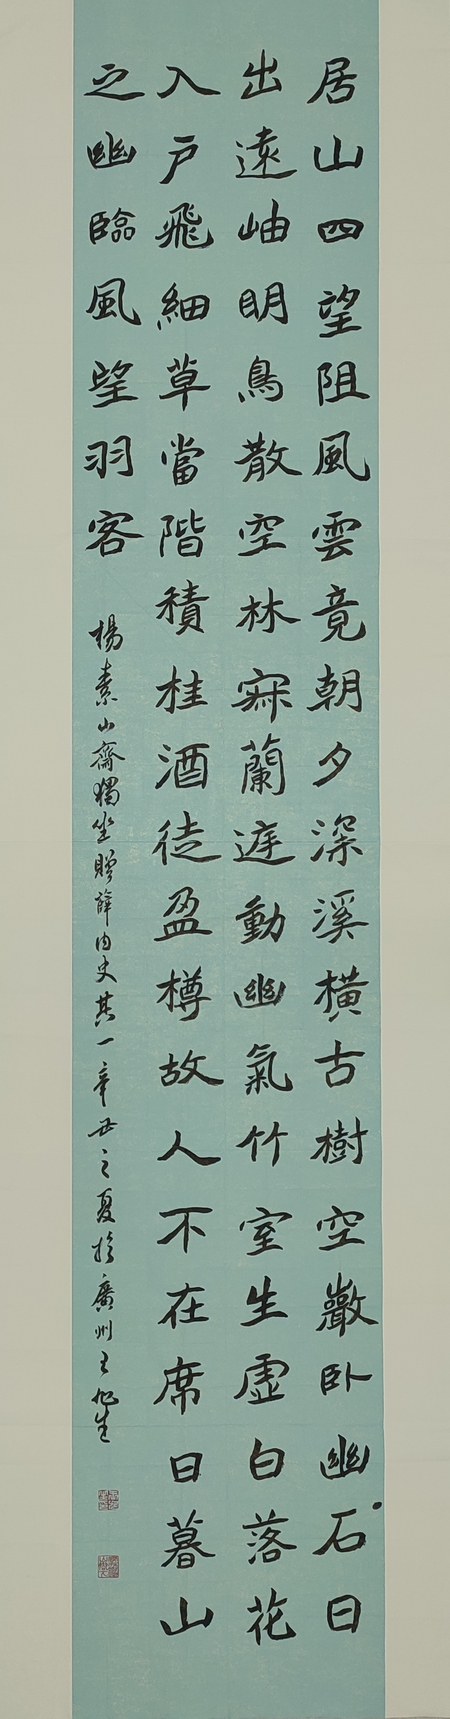 居山四望阻風雲竟朝夕深溪橫古樹空巖卧幽石日
出遠岫明鳥散空林寂蘭庭動幽氣竹室生虛白落花
入戶飛細草當階積桂酒徒盈樽故人不在席日暮山
之幽臨風望羽客
楊素山齋獨坐贈薛内史其一辛丑之夏於廣州王旭生